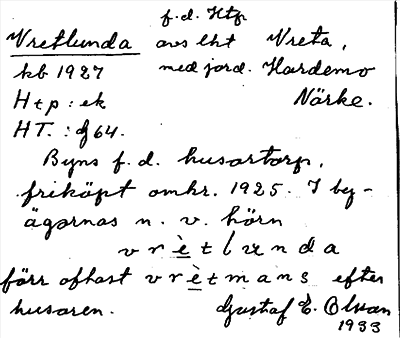 f.d. Htp
Vretlunda avs lht Vreta,
kb 1927 med jord. Hardemo
Htp: ek Närke.
HT.: df 64.
Byns f. d. husartorp,
friköpt omkr. 1925. I by-
ägornas n. v. hörn
vrètlunda
förr oftast vrètmans efter
husaren. Gustaf E. Olsson
1933